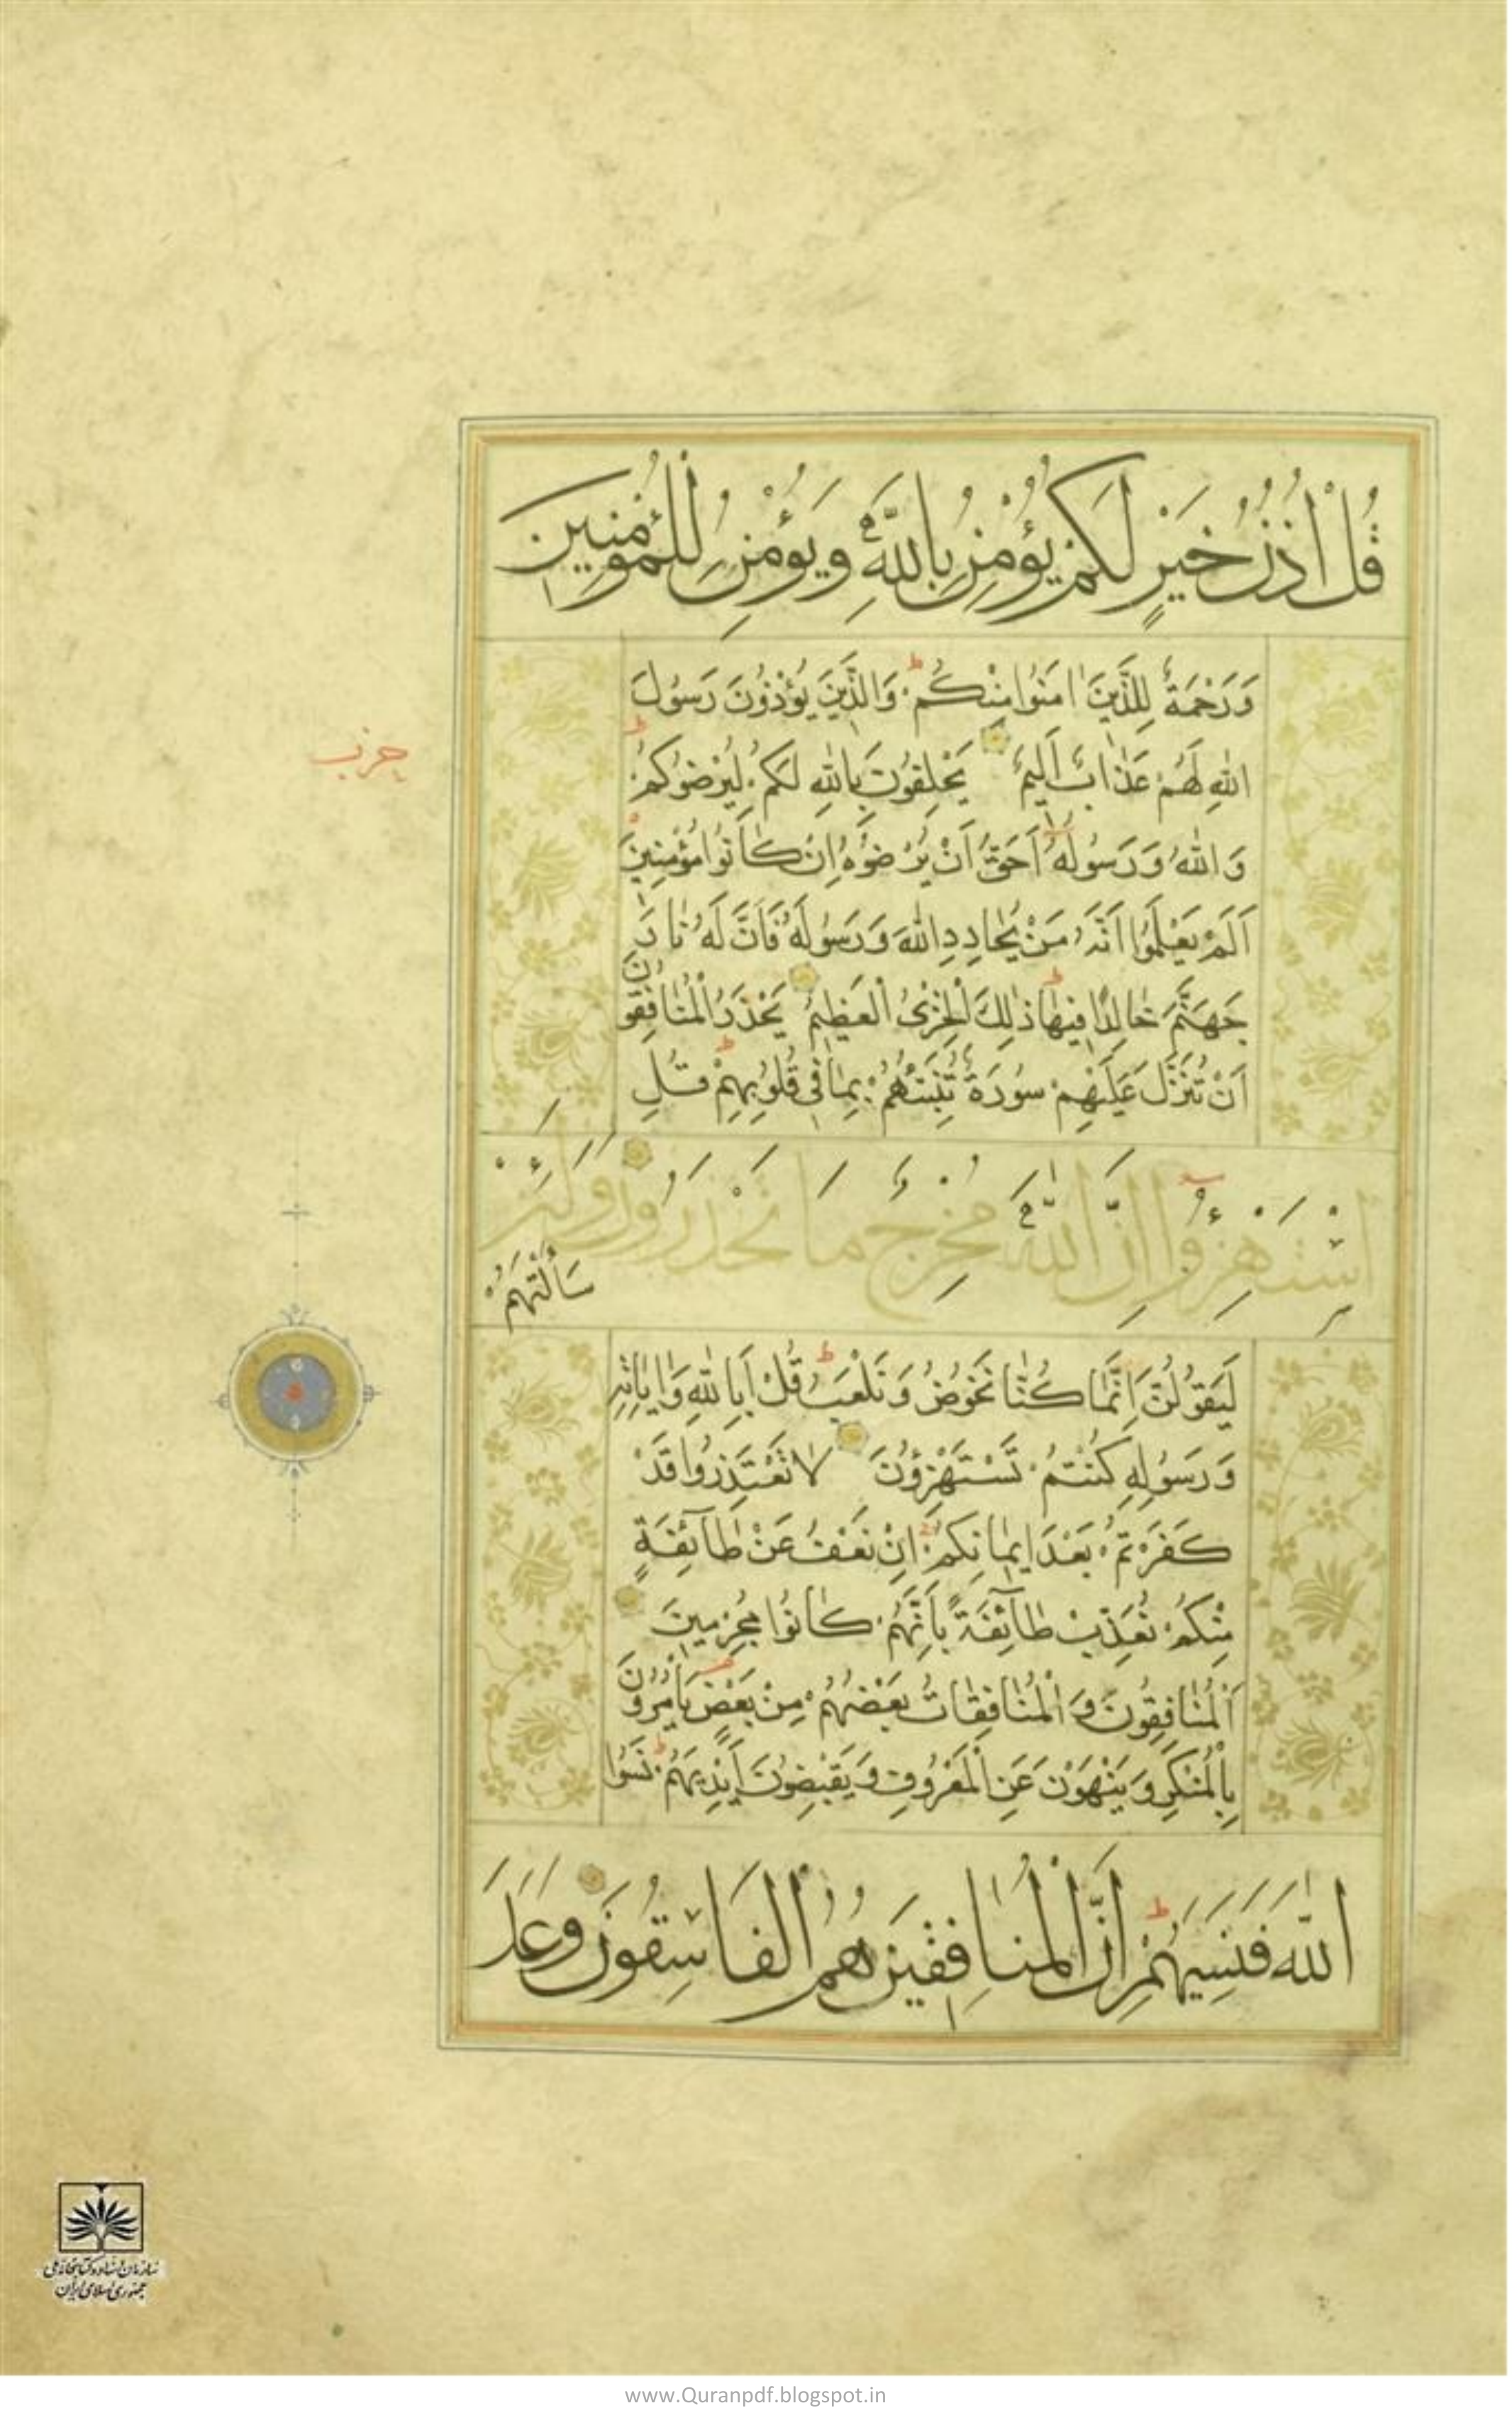 قُلْ اُذُنُ خَيْرٍ لَكُمْ يُؤْمِنُ بِاللّٰهِ وَيُؤْمِنُ لِلْمُؤْمِنِينَ
وَرَحْمَةٌ لِلَّذِينَ اٰمَنُوا مِنْكُمْ ط وَالَّذِينَ يُؤْذُونَ رَسُولَ
اللّٰهِ لَهُمْ عَذَابٌ اَلِيمٌ يَحْلِفُونَ بِاللّٰهِ لَكُمْ لِيُرْضُوكُمْ ط
حزب
وَاللّٰهُ وَرَسُولُهُ اَحَقُّ اَنْ يُرْضُوهُ اِنْ كَانُوا مُؤْمِنِينَ
اَلَمْ يَعْلَمُوا اَنَّهُ مَنْ يُحَادِدِ اللّٰهَ وَرَسُولَهُ فَاَنَّ لَهُ نَارَ
جَهَنَّمَ خَالِدًا فِيهَا ط ذٰلِكَ الْخِزْيُ الْعَظِيمُ يَحْذَرُ الْمُنَافِقُونَ
اَنْ تُنَزَّلَ عَلَيْهِمْ سُورَةٌ تُنَبِّئُهُمْ بِمَا فِي قُلُوبِهِمْ ط قُلِ
اسْتَهْزِءُوا اِنَّ اللّٰهَ مُخْرِجٌ مَا تَحْذَرُونَ وَلَئِنْ
سَاَلْتَهُمْ
لَيَقُولُنَّ اِنَّمَا كُنَّا نَخُوضُ وَنَلْعَبُ ط قُلْ اَبِاللّٰهِ وَاٰيَاتِهِ
وَرَسُولِهِ كُنْتُمْ تَسْتَهْزِؤُنَ لَا تَعْتَذِرُوا قَدْ
كَفَرْتُمْ بَعْدَ اِيمَانِكُمْ اِنْ نَعْفُ عَنْ طَآئِفَةٍ
مِنْكُمْ نُعَذِّبْ طَآئِفَةً بِاَنَّهُمْ كَانُوا مُجْرِمِينَ
اَلْمُنَافِقُونَ وَالْمُنَافِقَاتُ بَعْضُهُمْ مِنْ بَعْضٍ يَاْمُرُونَ
بِالْمُنْكَرِ وَيَنْهَوْنَ عَنِ الْمَعْرُوفِ وَيَقْبِضُونَ اَيْدِيَهُمْ ط نَسُوا
اللّٰهَ فَنَسِيَهُمْ ط اِنَّ الْمُنَافِقِينَ هُمُ الْفَاسِقُونَ وَعَدَ
سازمان اسناد و کتابخانه ملی
جمهوری اسلامی ایران
www.Quranpdf.blogspot.in